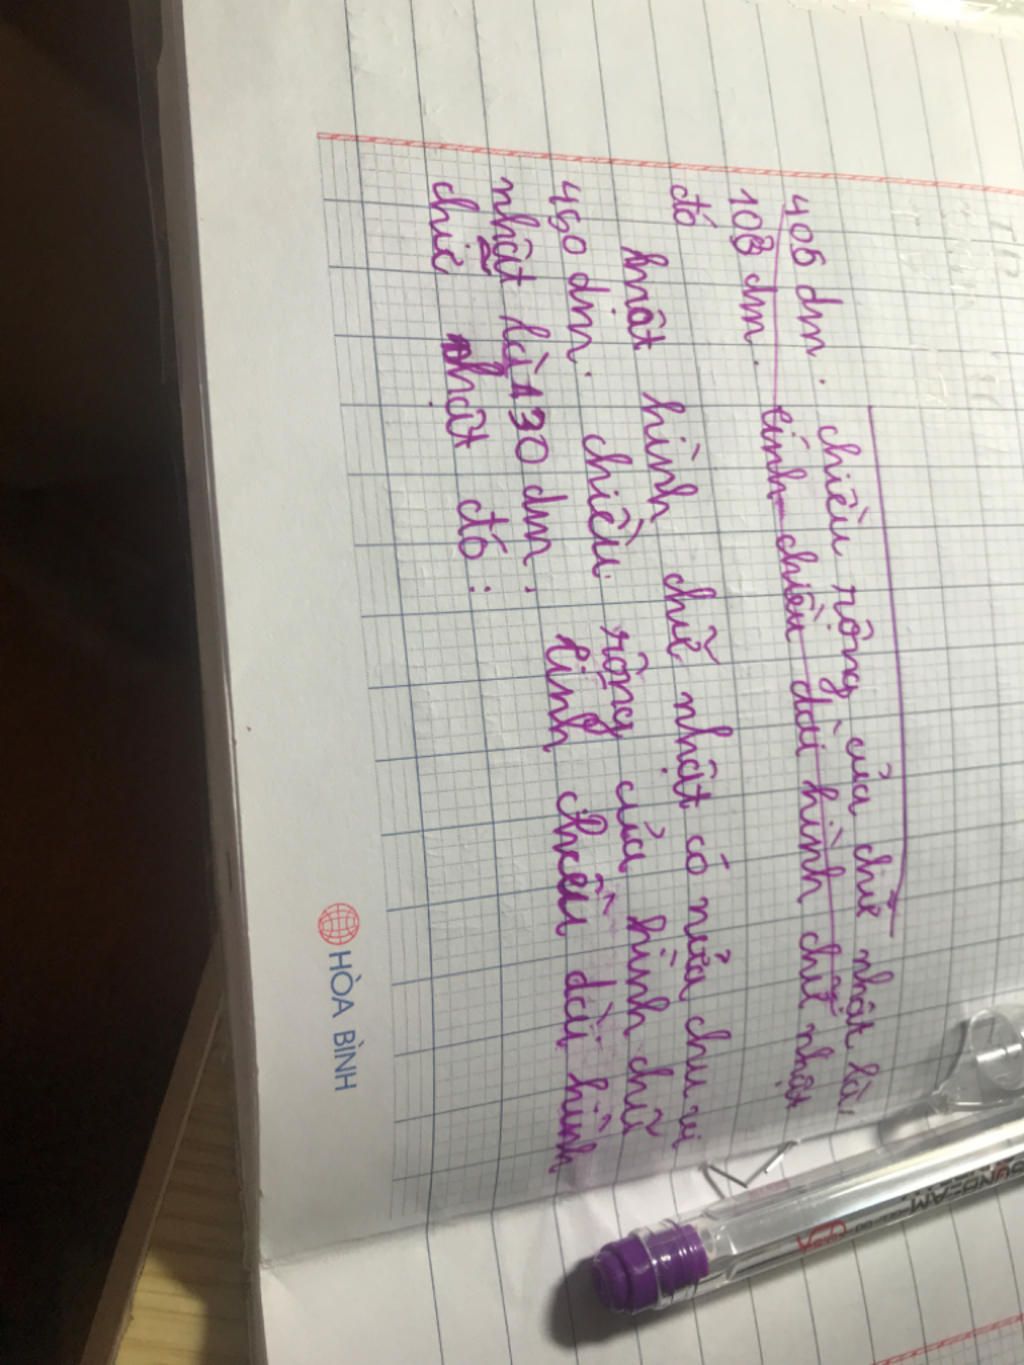 406 dm. chiều rộng của chữ nhật là
108 dm. tính chiều dài hình chữ nhật
đó
một hình chữ nhật có nửa chu vi
450 dm. chiều rộng của hình chữ
nhật là 130 dm. tính chều dài hình
chữ nhật đó:
HÒA BÌNH